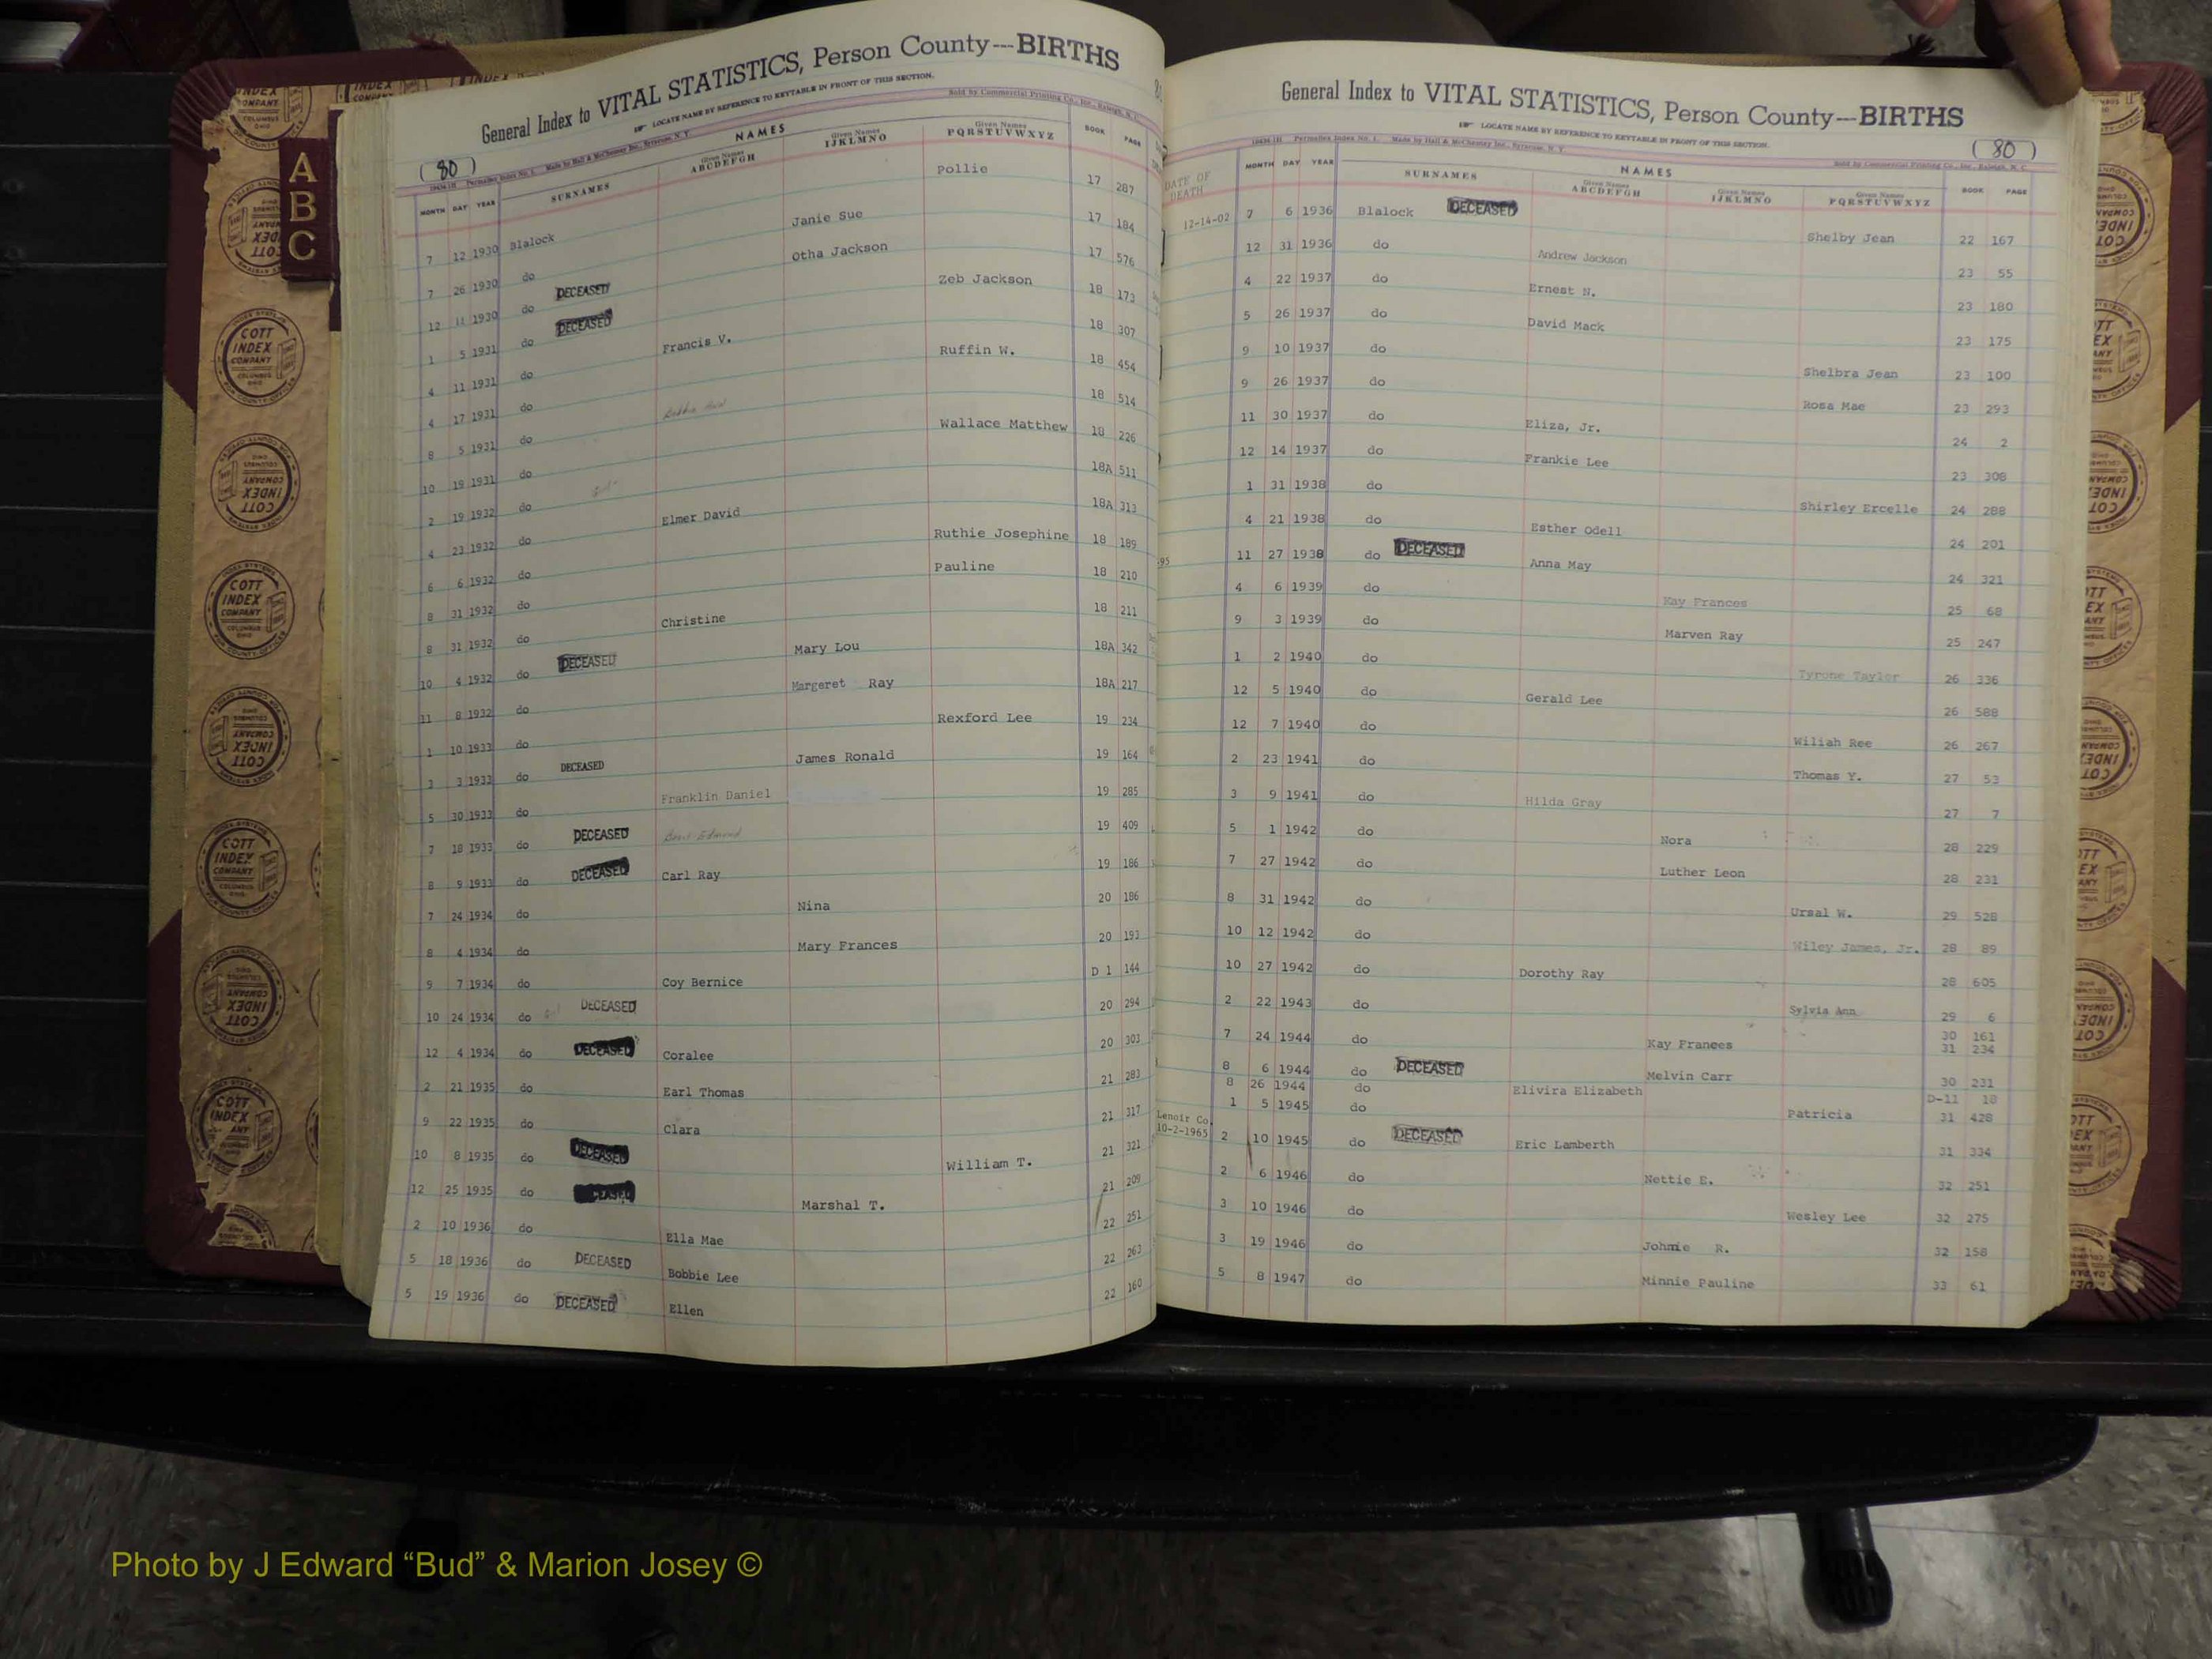 General Index to VITAL STATISTICS, Person County---BIRTHS
LOCATE NAME BY REFERENCE TO KEYTABLE IN FRONT OF THIS SECTION.
(80) Made by Hall & McChesney Inc., Syracuse, N. Y. Sold by Commercial Printing Co., Inc., Raleigh, N. C.
NAMES
MONTH DAY YEAR SURNAMES Given Names ABCDEFGH Given Names IJKLMNO Given Names PQRSTUVWXYZ BOOK PAGE
7 12 1930 Blalock Pollie 17 287
7 26 1930 do Janie Sue 17 184
12 11 1930 do DECEASED Otha Jackson 17 576
1 5 1931 do DECEASED Zeb Jackson 18 173
4 11 1931 do Francis V. 18 307
4 17 1931 do Ruffin W. 18 454
8 5 1931 do 18 514
10 19 1931 do Wallace Matthew 18 226
2 19 1932 do 18A 511
4 23 1932 do Elmer David 18A 313
6 6 1932 do Ruthie Josephine 18 189
8 31 1932 do Pauline 18 210
8 31 1932 do Christine 18 211
10 4 1932 do DECEASED Mary Lou 18A 342
11 8 1932 do Margeret Ray 18A 217
1 10 1933 do Rexford Lee 19 234
3 3 1933 do DECEASED James Ronald 19 164
5 30 1933 do Franklin Daniel 19 285
7 18 1933 do DECEASED 19 409
8 9 1933 do DECEASED Carl Ray 19 186
7 24 1934 do Nina 20 186
8 4 1934 do Mary Frances 20 193
9 7 1934 do Coy Bernice D 1 144
10 24 1934 do DECEASED 20 294
12 4 1934 do DECEASED Coralee 20 303
2 21 1935 do Earl Thomas 21 283
9 22 1935 do Clara 21 317
10 8 1935 do DECEASED William T. 21 321
12 25 1935 do DECEASED Marshal T. 21 209
2 10 1936 do Ella Mae 22 251
5 18 1936 do DECEASED Bobbie Lee 22 263
5 19 1936 do DECEASED Ellen 22 160
General Index to VITAL STATISTICS, Person County---BIRTHS
LOCATE NAME BY REFERENCE TO KEYTABLE IN FRONT OF THIS SECTION.
(80) Permaflex Index No. 1. Made by Hall & McChesney Inc., Syracuse, N. Y. Sold by Commercial Printing Co., Inc., Raleigh, N. C.
NAMES
DATE OF DEATH MONTH DAY YEAR SURNAMES Given Names ABCDEFGH Given Names IJKLMNO Given Names PQRSTUVWXYZ BOOK PAGE
12-14-02 7 6 1936 Blalock DECEASED Shelby Jean 22 167
12 31 1936 do Andrew Jackson 23 55
4 22 1937 do Ernest N. 23 180
5 26 1937 do David Mack 23 175
9 10 1937 do Shelbra Jean 23 100
9 26 1937 do Rosa Mae 23 293
11 30 1937 do Eliza, Jr. 24 2
12 14 1937 do Frankie Lee 23 308
1 31 1938 do Shirley Ercelle 24 288
4 21 1938 do Esther Odell 24 201
11 27 1938 do DECEASED Anna May 24 321
4 6 1939 do Kay Frances 25 68
9 3 1939 do Marven Ray 25 247
1 2 1940 do Tyrone Taylor 26 336
12 5 1940 do Gerald Lee 26 588
12 7 1940 do Wiliah Ree 26 267
2 23 1941 do Thomas Y. 27 53
3 9 1941 do Hilda Gray 27 7
5 1 1942 do Nora 28 229
7 27 1942 do Luther Leon 28 231
8 31 1942 do Ursal W. 29 528
10 12 1942 do Wiley James, Jr. 28 89
10 27 1942 do Dorothy Ray 28 605
2 22 1943 do Sylvia Ann 29 6
7 24 1944 do Kay Frances 30 161
31 234
8 6 1944 do DECEASED Melvin Carr 30 231
8 26 1944 do Elivira Elizabeth D-11 18
1 5 1945 do Patricia 31 428
Lenoir Co. 10-2-1963 2 10 1945 do DECEASED Eric Lamberth 31 334
2 6 1946 do Nettie E. 32 251
3 10 1946 do Wesley Lee 32 275
3 19 1946 do Johnie R. 32 158
5 8 1947 do Minnie Pauline 33 61
A
B
C
COTT INDEX COMPANY COLUMBUS OHIO
Photo by J Edward “Bud” & Marion Josey ©